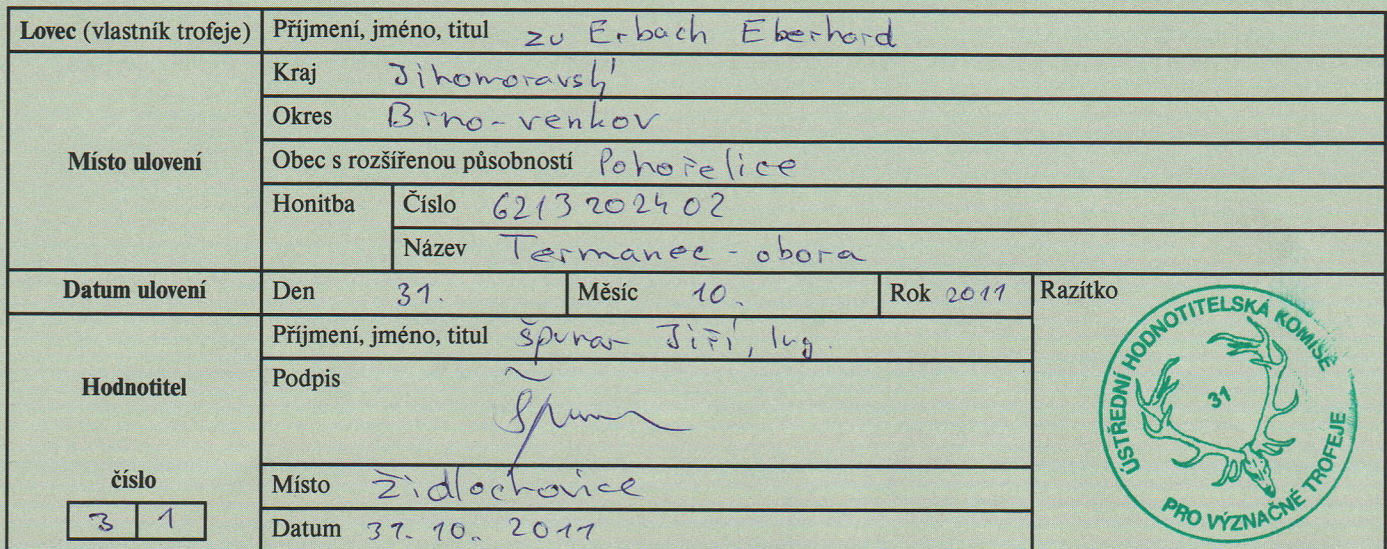 Lovec (vlastník trofeje) Příjmení, jméno, titul zu Erbach Eberhard
Kraj Jihomoravský
Okres Brno-venkov
Místo ulovení
Obec s rozšířenou působností Pohořelice
Honitba Číslo 6213202402
Název Termanec - obora
Datum ulovení Den 31. Měsíc 10. Rok 2011 Razítko
Příjmení, jméno, titul Špunar Jiří, Ing.
Hodnotitel
Podpis
číslo
3 1
Místo Židlochovice
Datum 31. 10. 2011
ÚSTŘEDNÍ HODNOTITELSKÁ KOMISE
31
PRO VÝZNAČNÉ TROFEJE